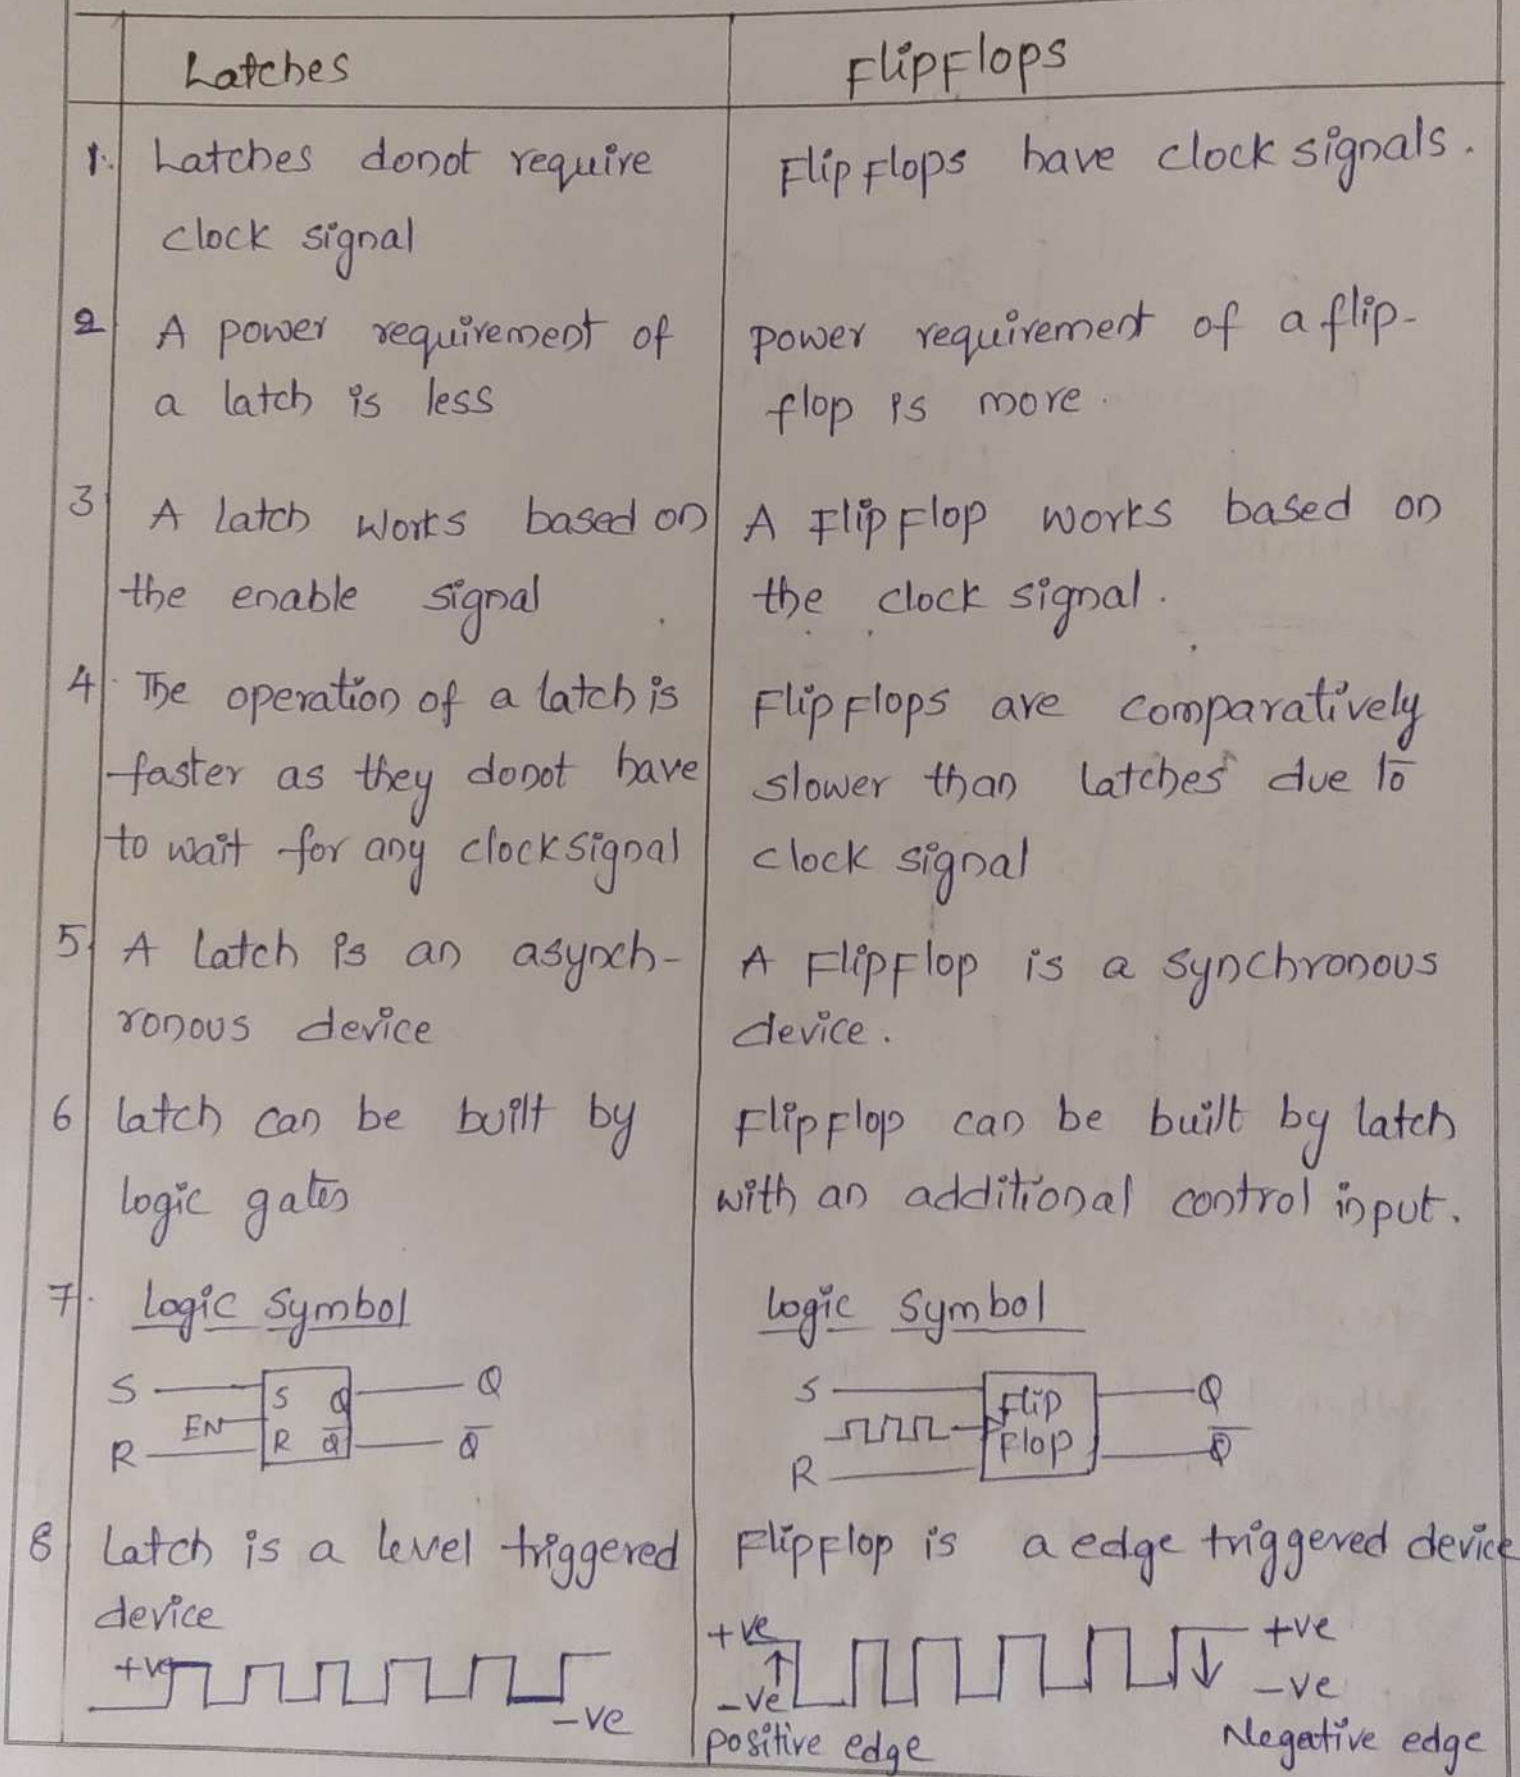 Latches
FlipFlops
1. Latches donot require
clock signal
Flip Flops have clock signals.
2 A power requirement of
a latch is less
power requirement of a flip-
flop is more.
3 A latch works based on
the enable signal
A FlipFlop works based on
the clock signal.
4. The operation of a latch is
faster as they donot have
to wait for any clocksignal
FlipFlops are comparatively
slower than latches due to
clock signal
5. A latch is an asynch-
ronous device
A FlipFlop is a synchronous
device.
6 latch can be built by
logic gates
FlipFlop can be built by latch
with an additional control input.
7. Logic symbol
S S Q Q
EN
R R Q̅ Q̅
logic symbol
S Flip Q
R Flop Q̅
8 Latch is a level triggered
device
+ve
-ve
FlipFlop is a edge triggered device
+ve +ve
-ve -ve
positive edge Negative edge